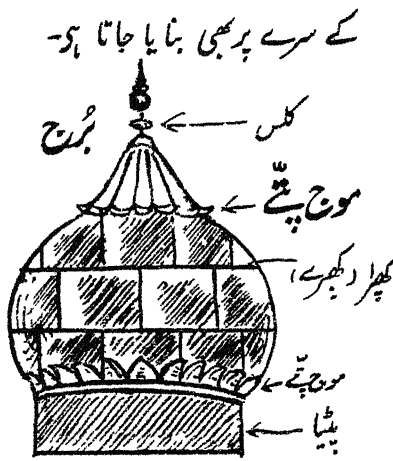 کے سرے پر بھی بنایا جاتا ہی۔
کلس
بُرج
موج پتّے
کھپرا (کھپرے)
موج پتّے
پٹیا